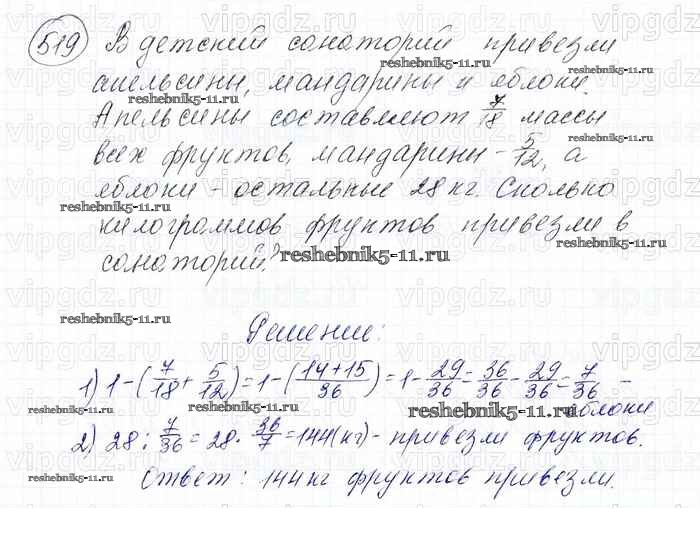 519 В детский санаторий привезли
апельсины, мандарины и яблоки.
Апельсины составляют 7/18 массы
всех фруктов, мандарины - 5/12, а
яблоки - остальные 28 кг. Сколько
килограммов фруктов привезли в
санаторий?
Решение:
1) 1-(7/18+5/12)=1-(14+15/36)=1-29/36=36/36-29/36=7/36 -
яблоки
2) 28:7/36=28·36/7=144(кг)- привезли фруктов.
Ответ: 144 кг фруктов привезли.
reshebnik5-11.ru
vipgdz